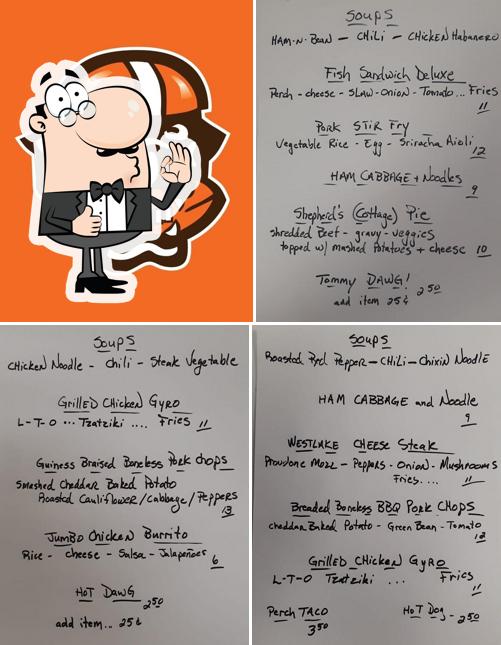 SOUPS
HAM-N-BEAN - CHiLi - CHICKEN Habanero
Fish Sandwich Deluxe
Perch - cheese - SLAW - ONION - Tomato... Fries
11
PORK STIR Fry
Vegetable Rice - Egg - Sriracha Aioli
12
HAM CABBAGE + Noodles
9
Shepherd's (Cottage) Pie
shredded Beef - gravy - veggies
topped w/ mashed Potatoes + cheese 10
Tommy DAWG! 2 50
add item 25¢
SOUPS
CHICKEN Noodle - Chili - Steak Vegetable
GRILLED CHICKEN GYRO
L-T-O ... Tzatziki .... Fries 11
Guiness Braised Boneless Pork Chops
Smashed Cheddar Baked Potato
Roasted Cauliflower/Cabbage/Peppers
13
Jumbo Chicken Burrito
Rice - Cheese - Salsa - Jalapeñoes 6
HOT DAWG 2 50
add item... 25¢
SOUPS
Roasted Red Pepper - CHiLi - Chixin Noodle
HAM CABBAGE and Noodle
9
WESTLAKE CHEESE Steak
Provolone Mozz - Peppers - Onion - Mushrooms
Fries.... 11
Breaded Boneless BBQ Pork CHOPS
cheddar Baked Potato - Green Bean - Tomato
GRILLED CHICKEN GYRO
L-T-O Tzatziki ... Fries
11
Perch TACO
3 50
HOT Dog - 2 50